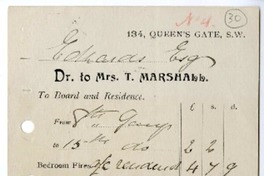 No 4.
30
134, QUEEN'S GATE, S.W.
Edwards Esq
Dr. to Mrs. T. MARSHALL.
To Board and Residence.
£ s. d.
From 8th
to 15th do 2 2
Bedroom Fires a/c rendered 4 7 9